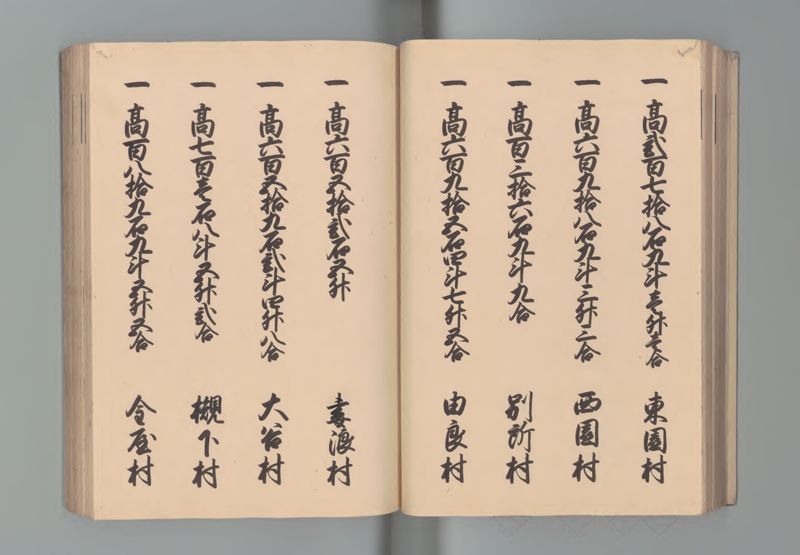 一 高弐百七拾八石九斗壱升三合 東園村
一 高六百九拾八石九斗三升三合 西園村
一 高百三拾六石九斗九合 別所村
一 高六百九拾五石四斗七升五合 由良村
一 高六百五拾弐石五升 妻浪村
一 高六百五拾九石弐斗四升八合 大谷村
一 高七百壱石八斗五升弐合 槻下村
一 高百八拾九石九斗五升五合 金屋村